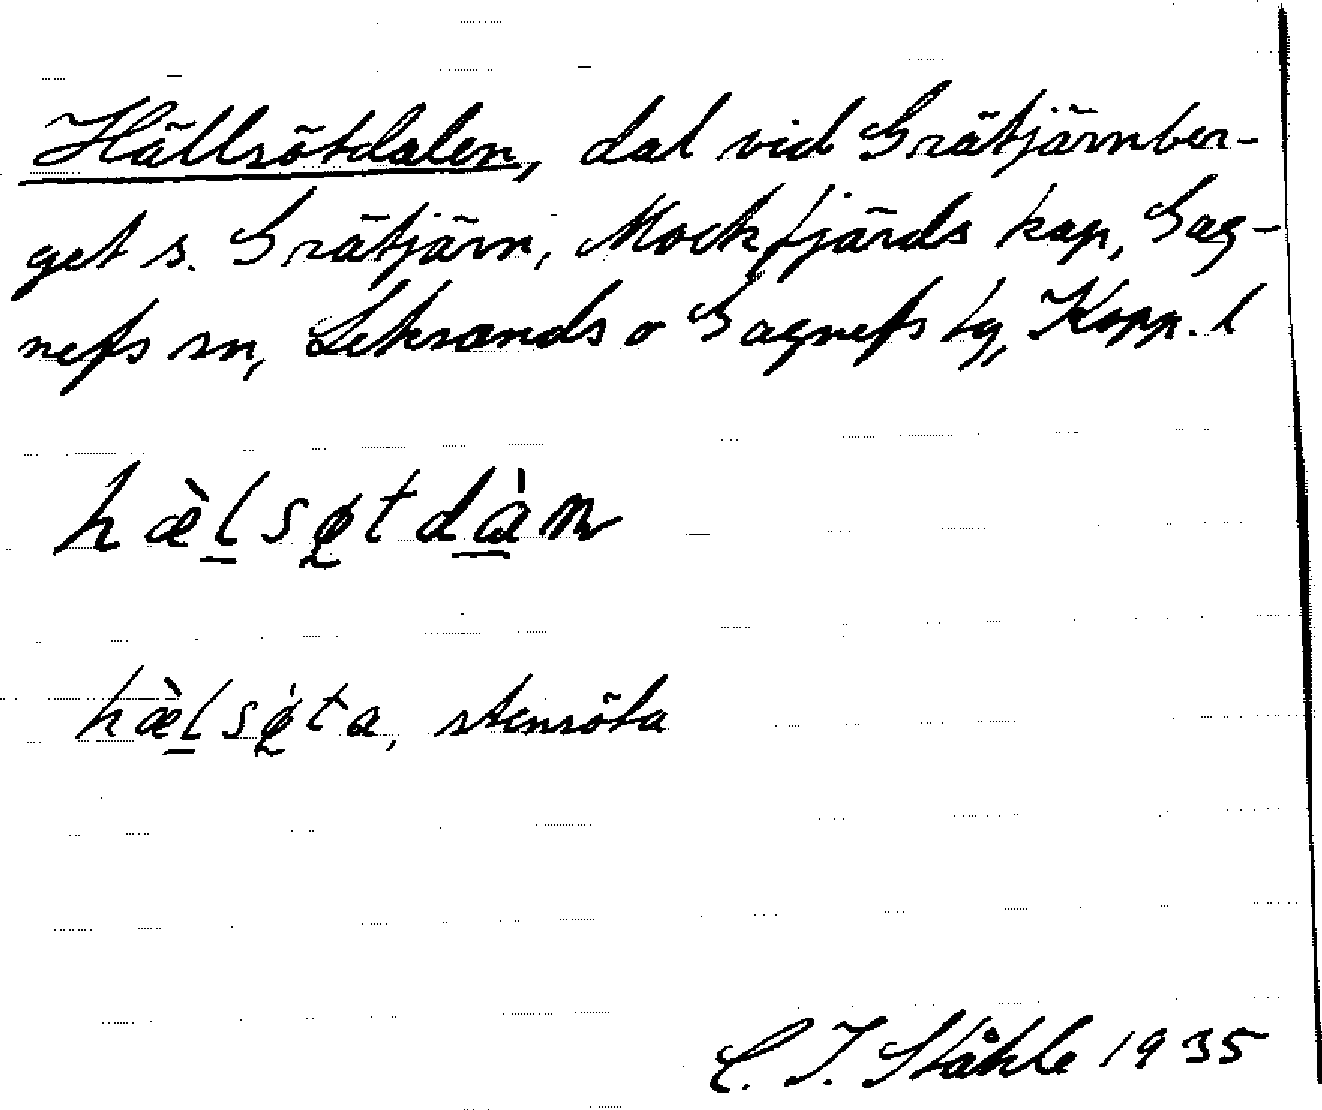 Hällsötdalen, dal vid Grätjärnber-
get s. Grätjärn, Mockfjärds kap, Gag-
nefs sn, Leksands o Gagnefs tg, Kopp. l
hæ̀l̠sø̨tda̠̍n
hæ̀l̠sø̨̍ta, stensöta
C. I. Ståhle 1935